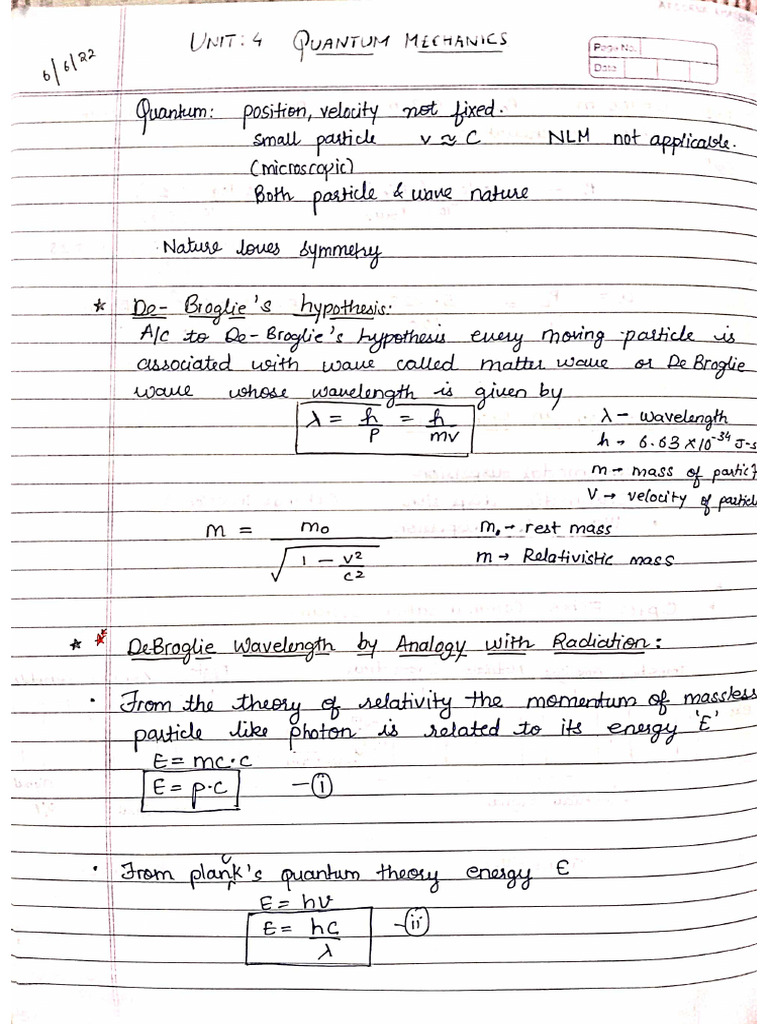 6/6/22
UNIT: 4 QUANTUM MECHANICS
Page No.
Date
Quantum: position, velocity not fixed.
small particle v ≈ C NLM not applicable.
(microscopic)
Both particle & wave nature
Nature loves symmetry
* De-Broglie's hypothesis:
A/c to De-Broglie's hypothesis every moving particle is
associated with wave called matter wave or De Broglie
wave whose wavelength is given by
λ = h/p = h/mv
λ - wavelength
h → 6.63 × 10^-34 J-s
m → mass of partic
V → velocity of particle
m = m0 / √(1 - v²/c²)
m0 → rest mass
m → Relativistic mass
* * DeBroglie Wavelength by Analogy with Radiation:
• From the theory of relativity the momentum of massless
particle like photon is related to its energy 'E'
E = mc·c
E = p·c - (i)
• From plank's quantum theory energy E
E = hν
E = hc/λ - (ii)